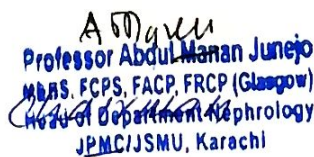 Professor Abdul Manan Junejo
MBBS, FCPS, FACP, FRCP (Glasgow)
Head of Department Nephrology
JPMC/JSMU, Karachi